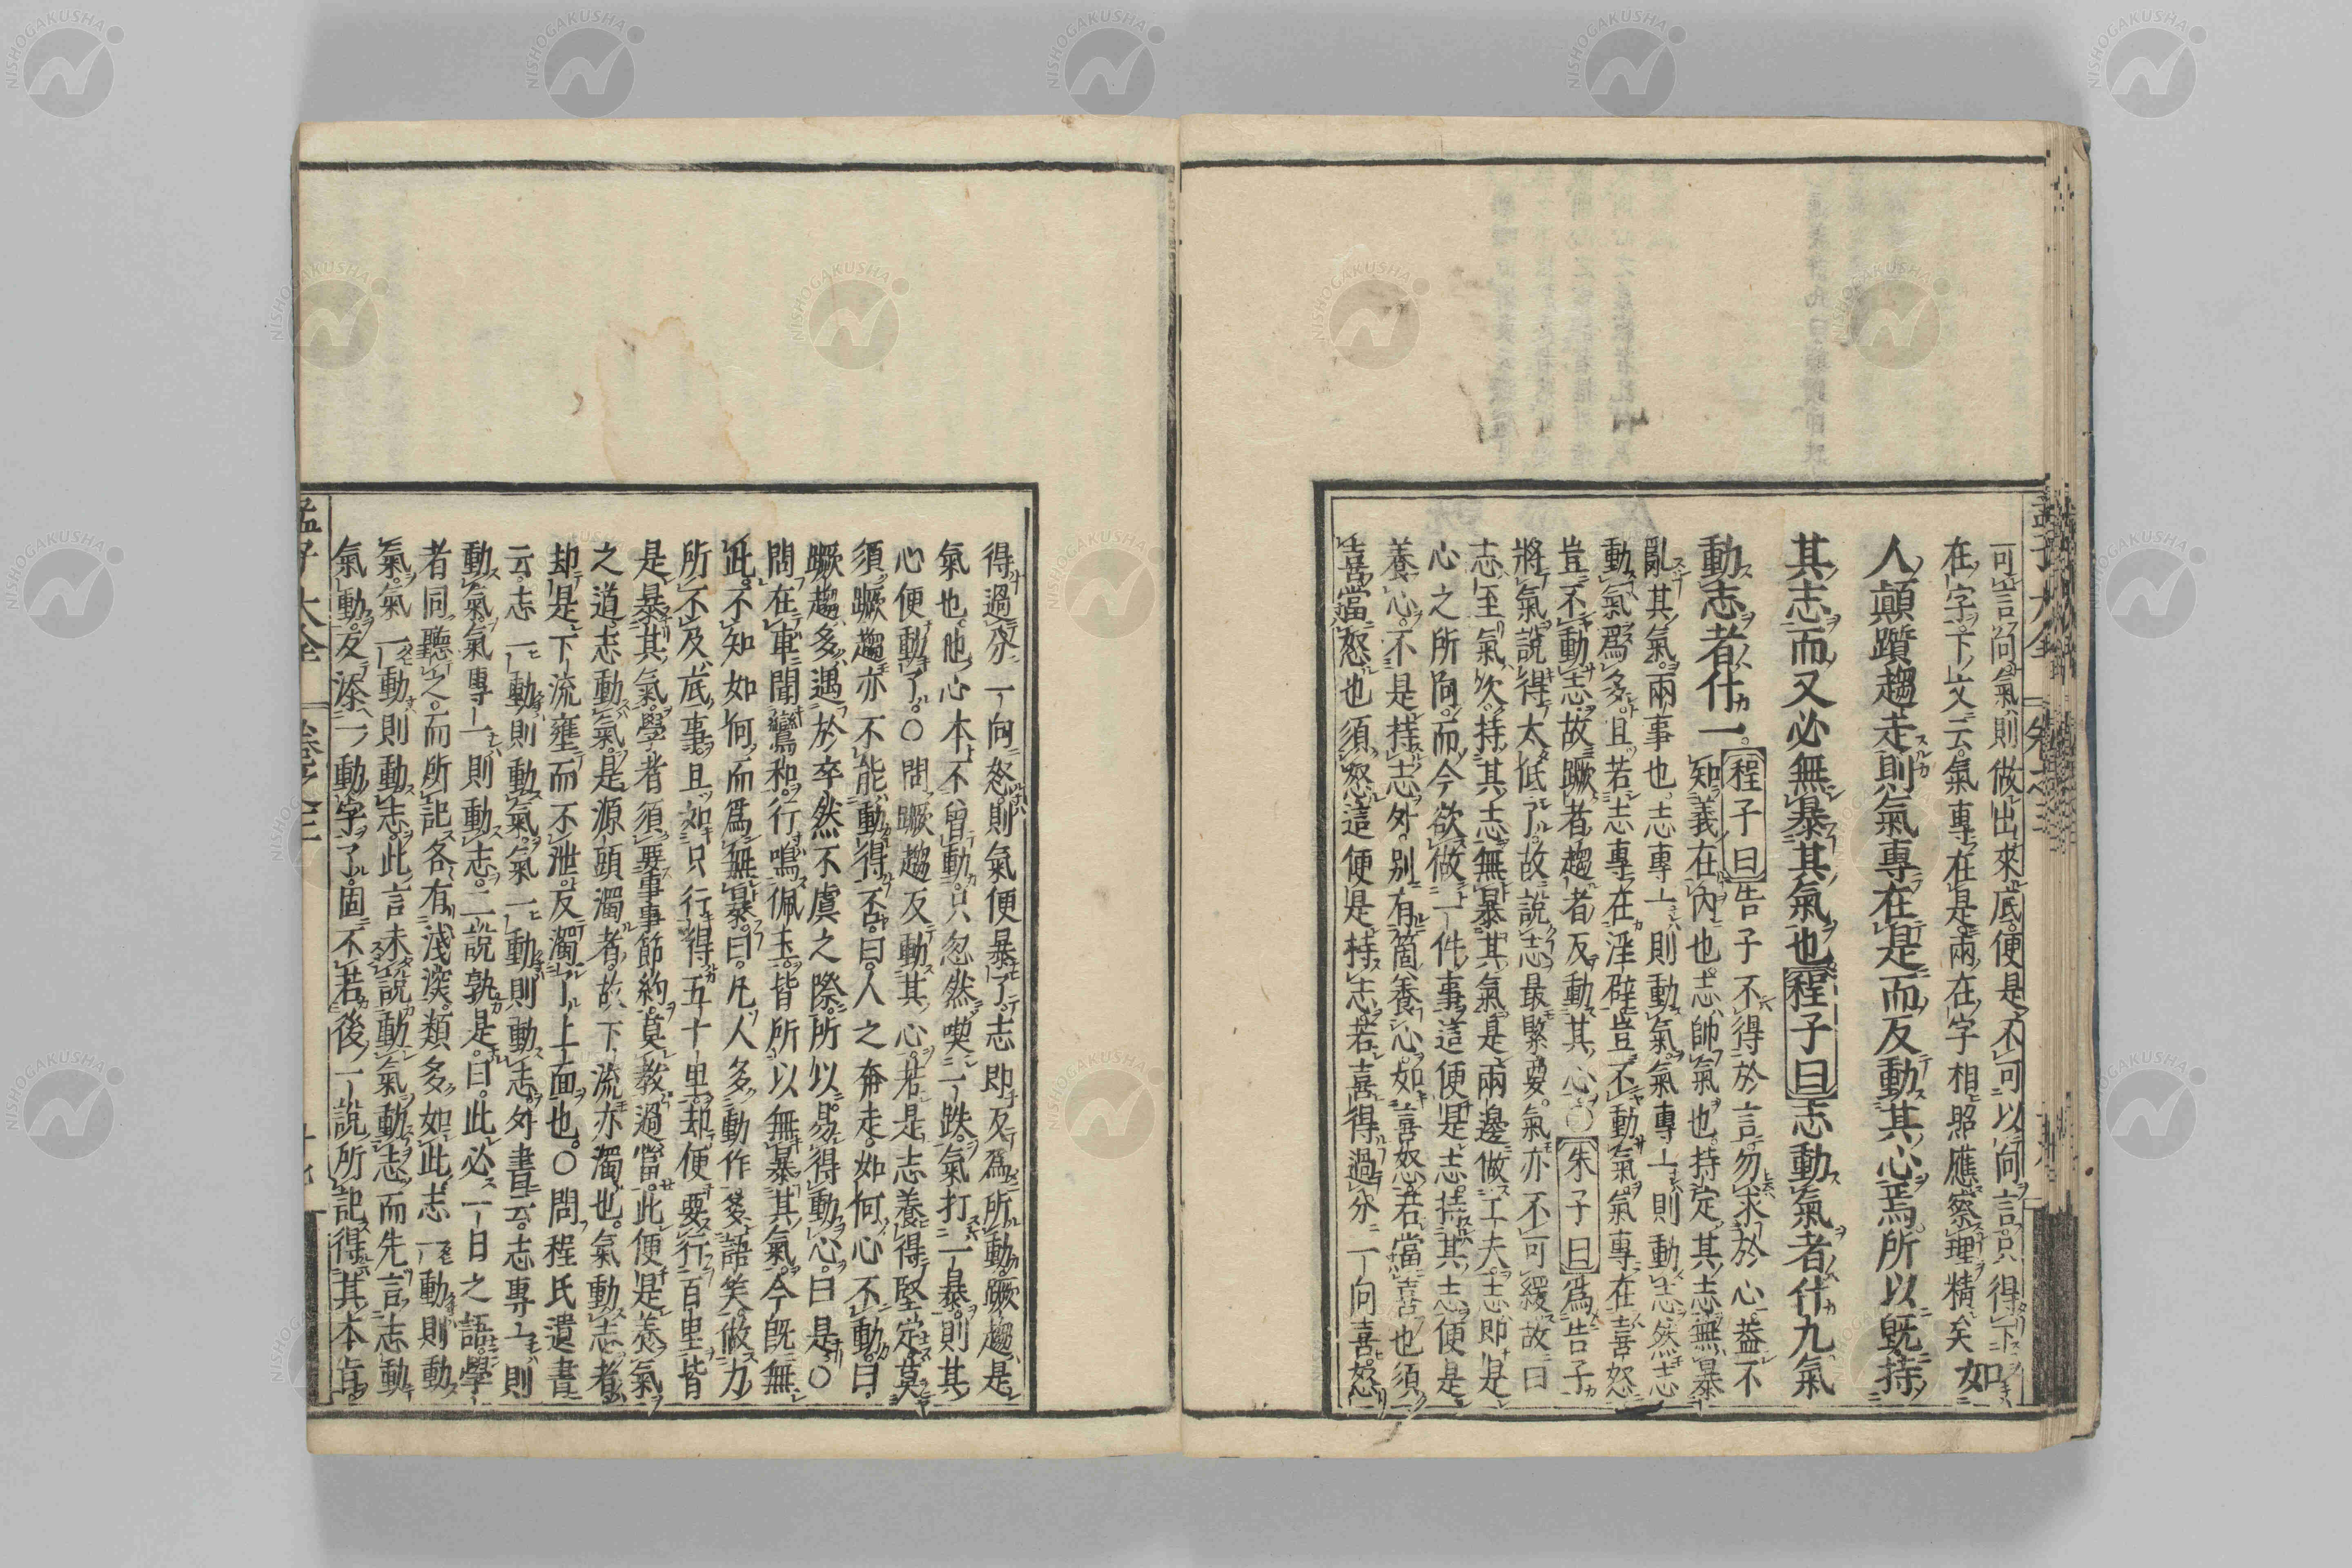 可言向氣則做出來底便是不可以向言只得下
在字下文云氣專在是兩在字相照應察理精矣如
人顛躓趨走則氣專在是而反動其心焉所以既持
其志而又必無暴其氣也程子曰志動氣者什九氣
動志者什一。
程子曰告子不得於言勿求於心葢不
知義在內也志帥氣也持定其志無暴
亂其氣兩事也志專一則動氣氣專一則動志然志
動氣爲多且若志專在淫辟豈不動氣氣專在喜怒
豈不動志故蹶者趨者反動其心〇朱子曰爲告子
將氣說得太低了故說志最緊要氣亦不可緩故曰
志至氣次持其志無暴其氣是兩邊做工夫志即是
心之所向而今欲做一件事這便是志持其志便是
養心不是持志外別有箇養心如言喜怒若當喜也須
喜當怒也須怒這便是持志若喜得過分一向喜怒
得過分一向怒則氣便暴了志即反爲所動蹶趨是
氣也他心本不曾動只忽然喫一跌氣打一暴則其
心便動了〇問蹶趨反動其心若是志養得堅定莫
須蹶趨亦不能動得否曰人之奔走如何心不動曰
蹶趨多遇於卒然不虞之際所以易得動心曰是〇
問在車聞鸞和行鳴佩玉皆所以無暴其氣今既無
此不知如何而爲無暴曰凡人多動作多語笑做力
所不及底事且如只行得五十里却便要行百里皆
是暴其氣學者須要事事節約莫敎過當此便是養氣
之道志動氣是源頭濁者故下流亦濁也氣動志者
却是下流壅而不泄反濁了上面也〇問程氏遺書
云志一動則動氣氣一動則動志外書云志專一則
動氣氣專一則動志二說孰是曰此必一日之語學
者同聽之而所記各有淺深類多如此志一動則動
氣氣一動則動志此言未說動氣動志而先言志動
氣動反添一動字了固不若後一說所記得其本旨
孟子大全
卷之三